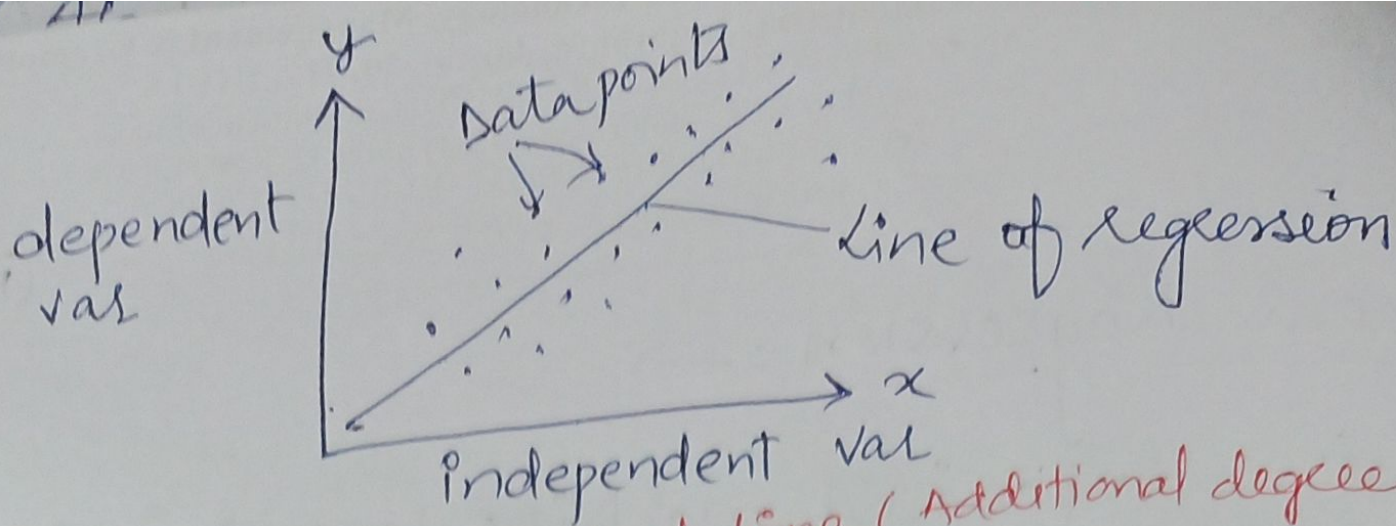 y
Data points
dependent
var
Line of regression
x
independent var
( Additional degree